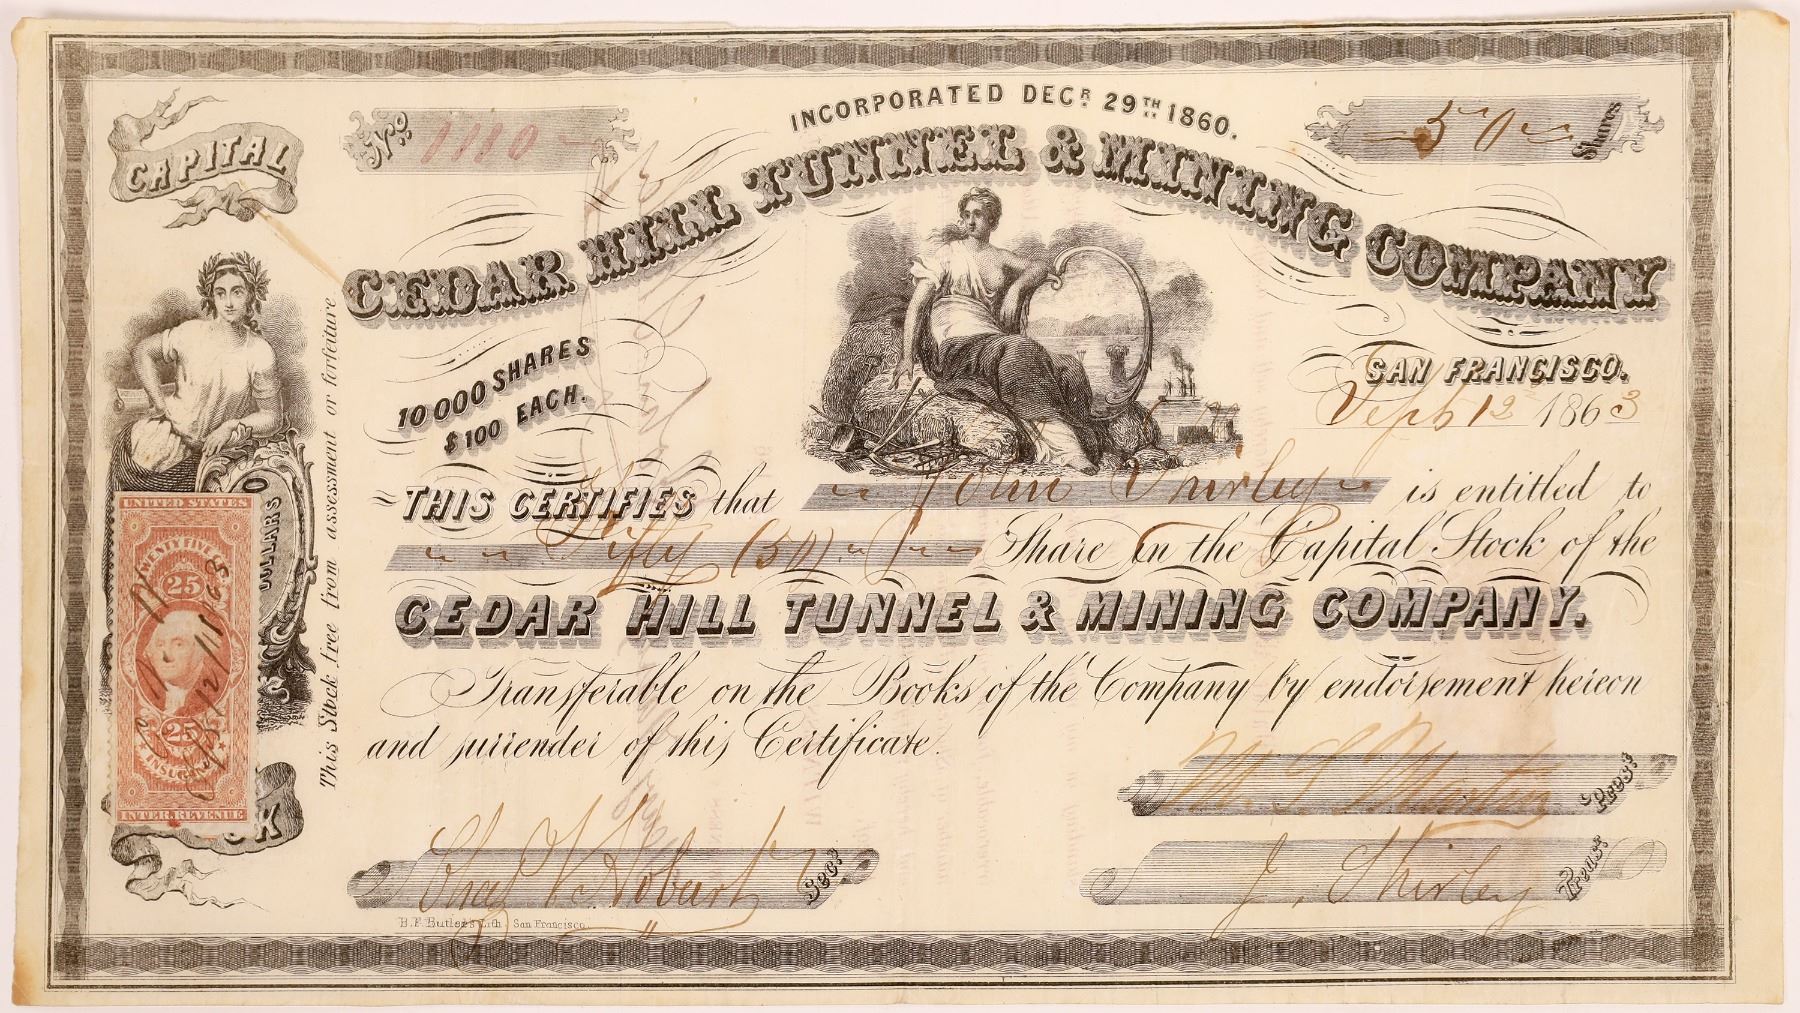 INCORPORATED DECR. 29TH 1860.
CAPITAL
No. 1110
50 Shares
CEDAR HILL TUNNEL & MINING COMPANY
10000 SHARES
$100 EACH.
SAN FRANCISCO.
Sept 12 1863
THIS CERTIFIES that John Shirley is entitled to
Fifty (50) Share in the Capital Stock of the
CEDAR HILL TUNNEL & MINING COMPANY.
Transferable on the Books of the Company by endorsement hereon
and surrender of this Certificate.
This Stock free from assessment or forfeiture
DOLLARS
UNITED STATES
TWENTY FIVE
25
25
INTER. REVENUE
CK
Prest.
J. Shirley Treast.
Chas. Hobart Sect.
B. F. Butler's Lith. San Francisco.